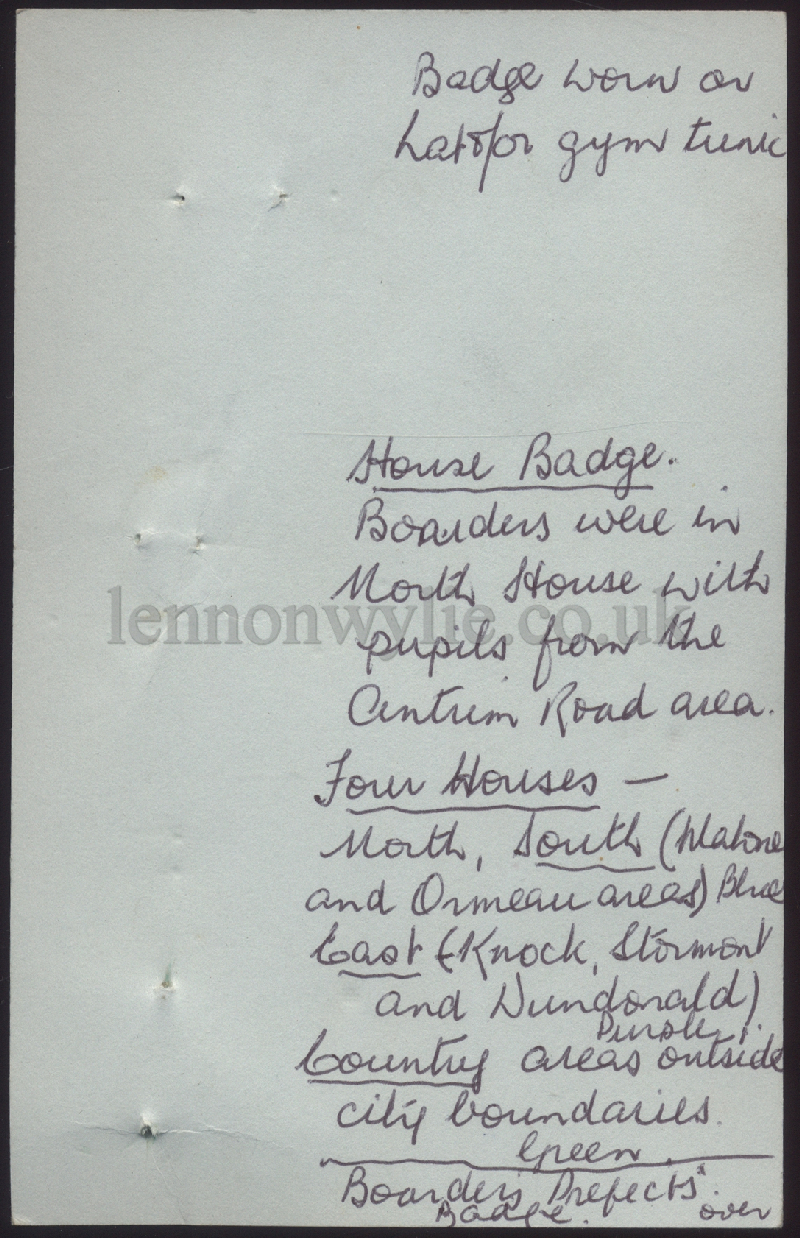 Badge worn on
hat &/or gym tunic
House Badge.
Boarders were in
North House with
lennonwylie.co.uk
pupils from the
Antrim Road area.
Four Houses —
North, South (Malone
and Ormeau areas) Blue
East (Knock, Stormont
and Dundonald)
Purple.
Country areas outside
city boundaries.
Green.
Boarders Prefects'
Badge. over